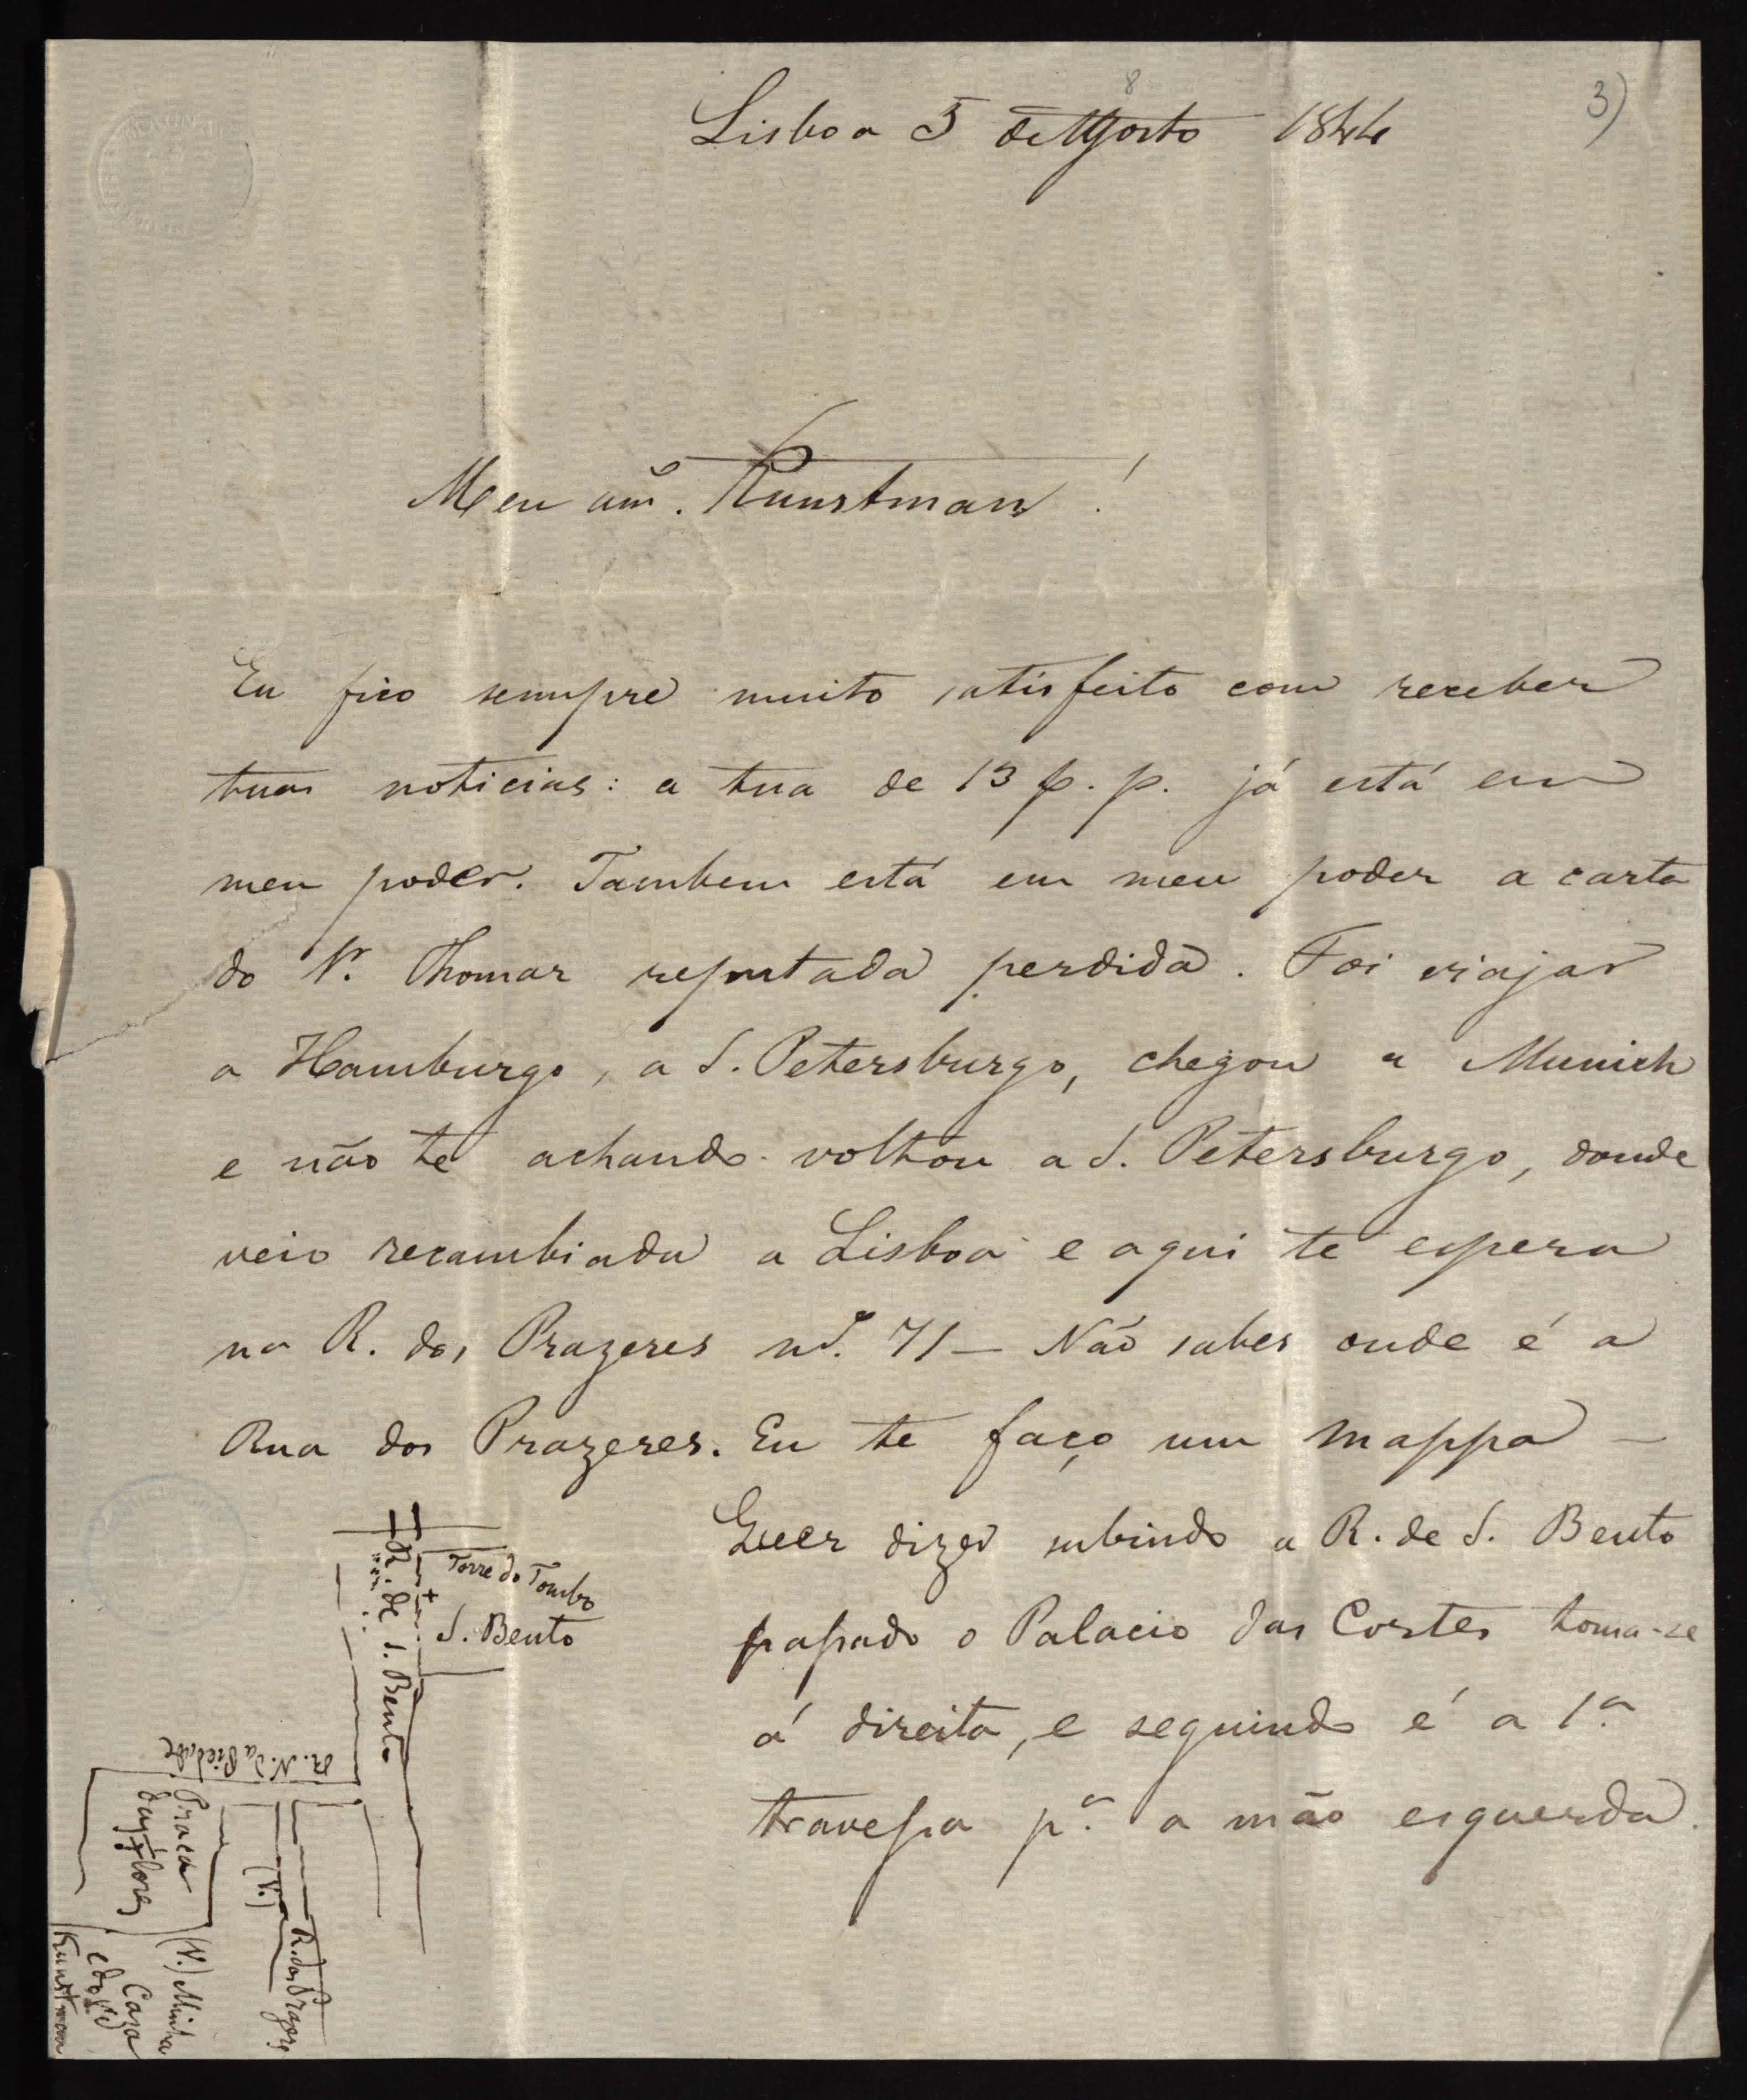 3)
8
Lisboa 5 de Agosto 1844
Meu am.º Kunstman!
Eu fico sempre muito satisfeito com receber
tuas noticias: a tua de 13 p. p. já está em
meu poder. Tambem está em meu poder a carta
do V. Thomar reputada perdida. Foi viajar
a Hamburgo, a S. Petersburgo, chegou a Munich
e não te achando voltou a S. Petersburgo, donde
veio recambiada a Lisboa e aqui te espera
na R. dos Prazeres nº. 71 — Não sabes onde é a
Rua dos Prazeres. Eu te faço um mappa —
Quer dizer subindo a R. de S. Bento
passado o Palacio das Cortes toma-se
á direita, e seguindo é a 1.ª
travessa p.ª a mão esquerda.
Torre do Tombo
S. Bento
R. de S. Bento
R. N. da Piedade
Praça
das Flores
(V.)
R. dos Prazeres
(V.) Minha
Caza
e do Sr
Kunstman